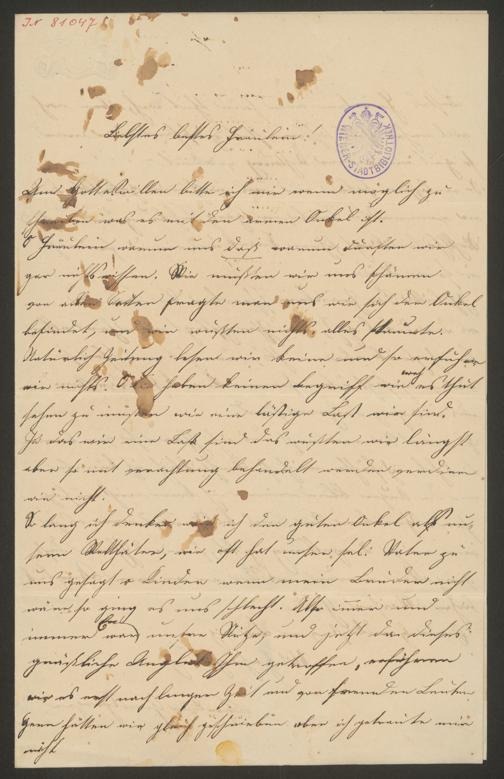 IN 81047
WIENER STADTBIBLIOTHEK
Liebstes bestes Fräulein!
Um Gotteswillen bitte ich wenn möglich zu
schreiben was es mit den armen Onkel ist.
O Fräulein warum uns daß warum dürften wir
gar nichts wissen. Wie müßten wir uns schämen
von allen Leuten fragte man uns wie sich der Onkel
befindet, und wir wußten nichts alles staunte.
Natürlich Zeitung lesen wir keine und so erfuhren
wir nichts. O Sie haben keinen Begriff wie weh es thut
sehen zu müssen wie eine lästige Last wir sind.
Ja das wir eine Last sind das wußten wir längst
aber so mit verachtung behandelt werden verdienen
wir nicht.
So lang ich denke war ich den guten Onkel als un-
sern Wohlthäter, wie oft hat unser sel: Vater zu
uns gesagt o Kinder wenn mein Bruder nicht
wäre, so ging es uns schlecht. Also immer und
immer war Er unsere Stütze und jetzt da dieses
gräßliche Unglück Ihm getroffen, erfuhren
wir es erst nach langer Zeit und von fremden Leuten
Gern hätten wir gleich geschrieben aber ich getraute mir
nicht